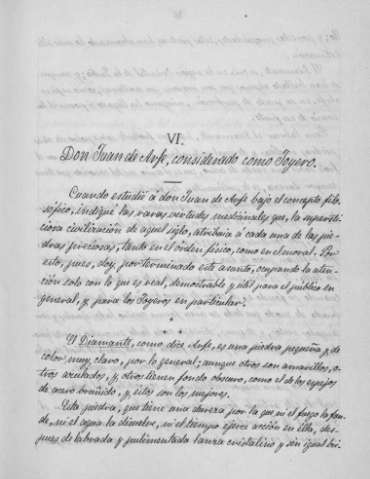 VI.
Don Juan de Arfe, considerado como Joyero.
Cuando estudié á don Juan de Arfe bajo el concepto filo-
sófico, indiqué las raras virtudes medicinales que, la supersti-
ciosa civilización de aquel siglo, atribuía á cada una de las pie-
dras preciosas, tanto en el orden físico, como en el moral. Por
esto, pues, doy por terminado este asunto, ocupando la aten-
ción solo con lo que es real, demostrable y útil para el público en
general, y para los Joyeros en particular.
El Diamante, como dice Arfe, es una piedra pequeña y de
color muy claro, por lo general; aunque otros son amarillos, o-
tros azulados, y otros tienen fondo obscuro, como el de los espejos
de acero bruñido, y éstos son los mejores.
Esta piedra, que tiene una dureza por la que ni el fuego la fun-
de, ni el agua la disuelve, ni el tiempo ejerce acción en ella, des-
pues de labrada y pulimentada lanza cristalino y sin igual bri-